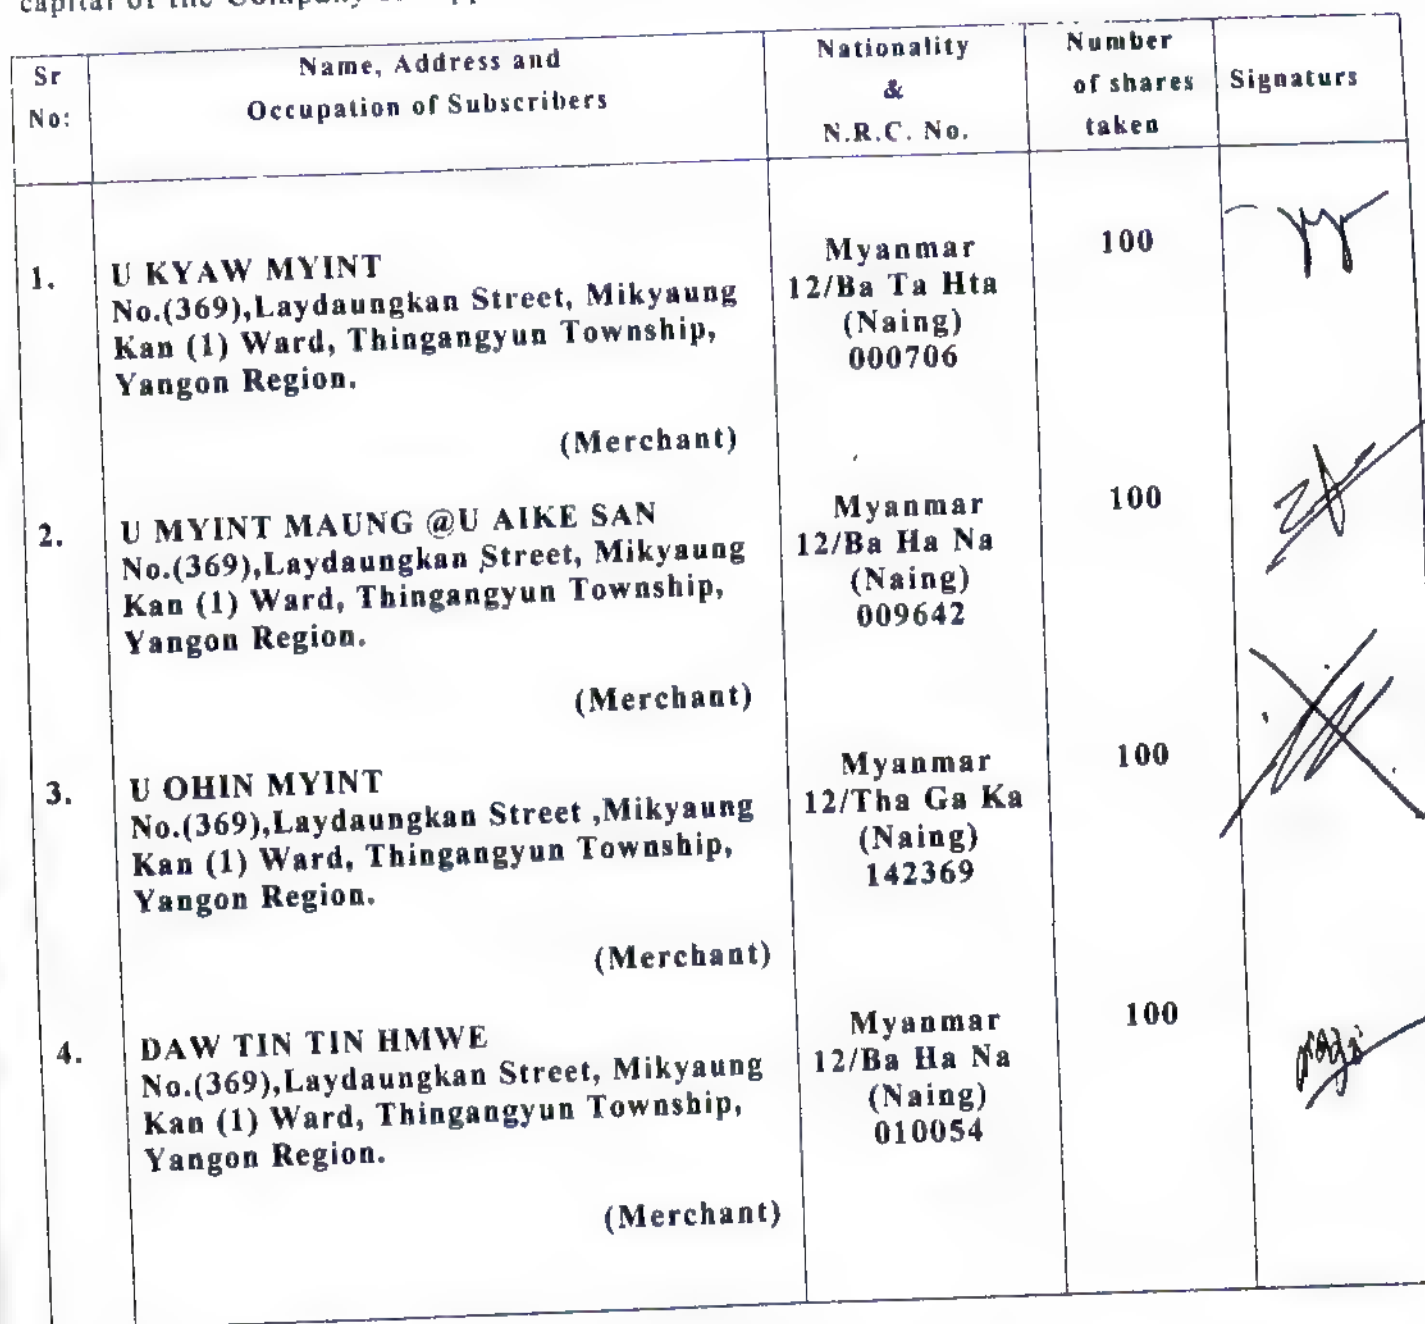 capital of the Company
Sr
No:
Name, Address and
Occupation of Subscribers
Nationality
&
N.R.C. No.
Number
of shares
taken
Signaturs
1.
U KYAW MYINT
No.(369),Laydaungkan Street, Mikyaung
Kan (1) Ward, Thingangyun Township,
Yangon Region.
(Merchant)
Myanmar
12/Ba Ta Hta
(Naing)
000706
100
2.
U MYINT MAUNG @U AIKE SAN
No.(369),Laydaungkan Street, Mikyaung
Kan (1) Ward, Thingangyun Township,
Yangon Region.
(Merchant)
Myanmar
12/Ba Ha Na
(Naing)
009642
100
3.
U OHIN MYINT
No.(369),Laydaungkan Street ,Mikyaung
Kan (1) Ward, Thingangyun Township,
Yangon Region.
(Merchant)
Myanmar
12/Tha Ga Ka
(Naing)
142369
100
4.
DAW TIN TIN HMWE
No.(369),Laydaungkan Street, Mikyaung
Kan (1) Ward, Thingangyun Township,
Yangon Region.
(Merchant)
Myanmar
12/Ba Ha Na
(Naing)
010054
100